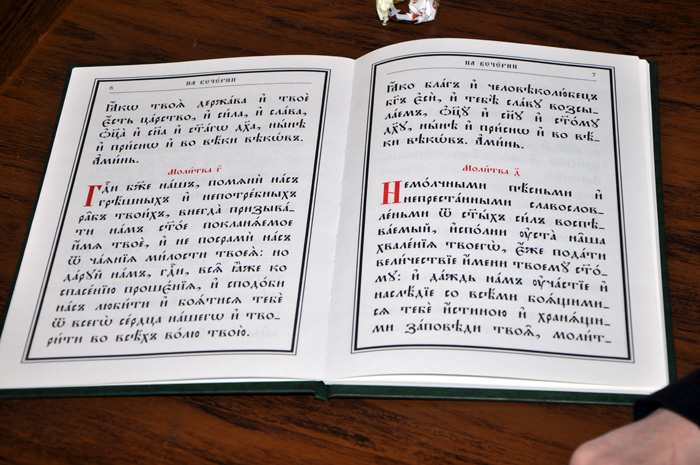 6
НА ВЕЧЕ́РНИ
Ꙗ҆́кѡ твоѧ̀ держа́ва и҆ твоѐ
є҆́сть ца́рство, и҆ си́ла, и҆ сла́ва,
ѻ҆ц҃а̀ и҆ сн҃а и҆ ст҃а́гѡ дх҃а, ны́нѣ
и҆ при́снѡ и҆ во вѣ́ки вѣкѡ́въ.
А҆ми́нь.
Моли́тва г҃
Гдⷭ҇и бж҃е на́шъ, помѧнѝ на́съ
грѣ́шныхъ и҆ непотре́бныхъ
ра̑бъ твои́хъ, внегда̀ призыва́-
ти на́мъ ст҃о́е покланѧ́емое
и҆́мѧ твоѐ, и҆ не посрамѝ на́съ
ѿ ча́ѧнїѧ ми́лости твоеѧ̀: но
да́руй на́мъ, гдⷭ҇и, всѧ̑ ꙗ҆̀же ко
спасе́нїю проше́нїѧ, и҆ сподо́би
на́съ люби́ти и҆ боѧ́тисѧ тебє̀
ѿ всегѡ̀ се́рдца на́шегѡ и҆ тво-
ри́ти во всѣ́хъ во́лю твою̀.
НА ВЕЧЕ́РНИ
7
Ꙗ҆́кѡ бл҃гъ и҆ человѣколю́бецъ
бг҃ъ є҆сѝ, и҆ тебѣ̀ сла́вꙋ возсы-
ла́емъ, ѻ҆ц҃ꙋ̀ и҆ сн҃ꙋ и҆ ст҃о́мꙋ
дх҃ꙋ, ны́нѣ и҆ при́снѡ и҆ во вѣ́-
ки вѣкѡ́въ. А҆ми́нь.
Моли́тва д҃
Немо́лчными пѣ́сньми и҆
непреста́нными славослов-
ле́ньми ѿ ст҃ы́хъ си́лъ воспѣ-
ва́емый, и҆спо́лни ᲂу҆ста̀ на̑ша
хвале́нїѧ твоегѡ̀, є҆́же пода́ти
вели́чествїе и҆́мени твоемꙋ̀ ст҃о́-
мꙋ: и҆ да́ждь на́мъ ᲂу҆ча́стїе и҆
наслѣ́дїе со всѣ́ми боѧ́щими-
сѧ тебє̀ и҆́стиною и҆ хранѧ́щи-
ми за́повѣди твоѧ̑, моли́т-